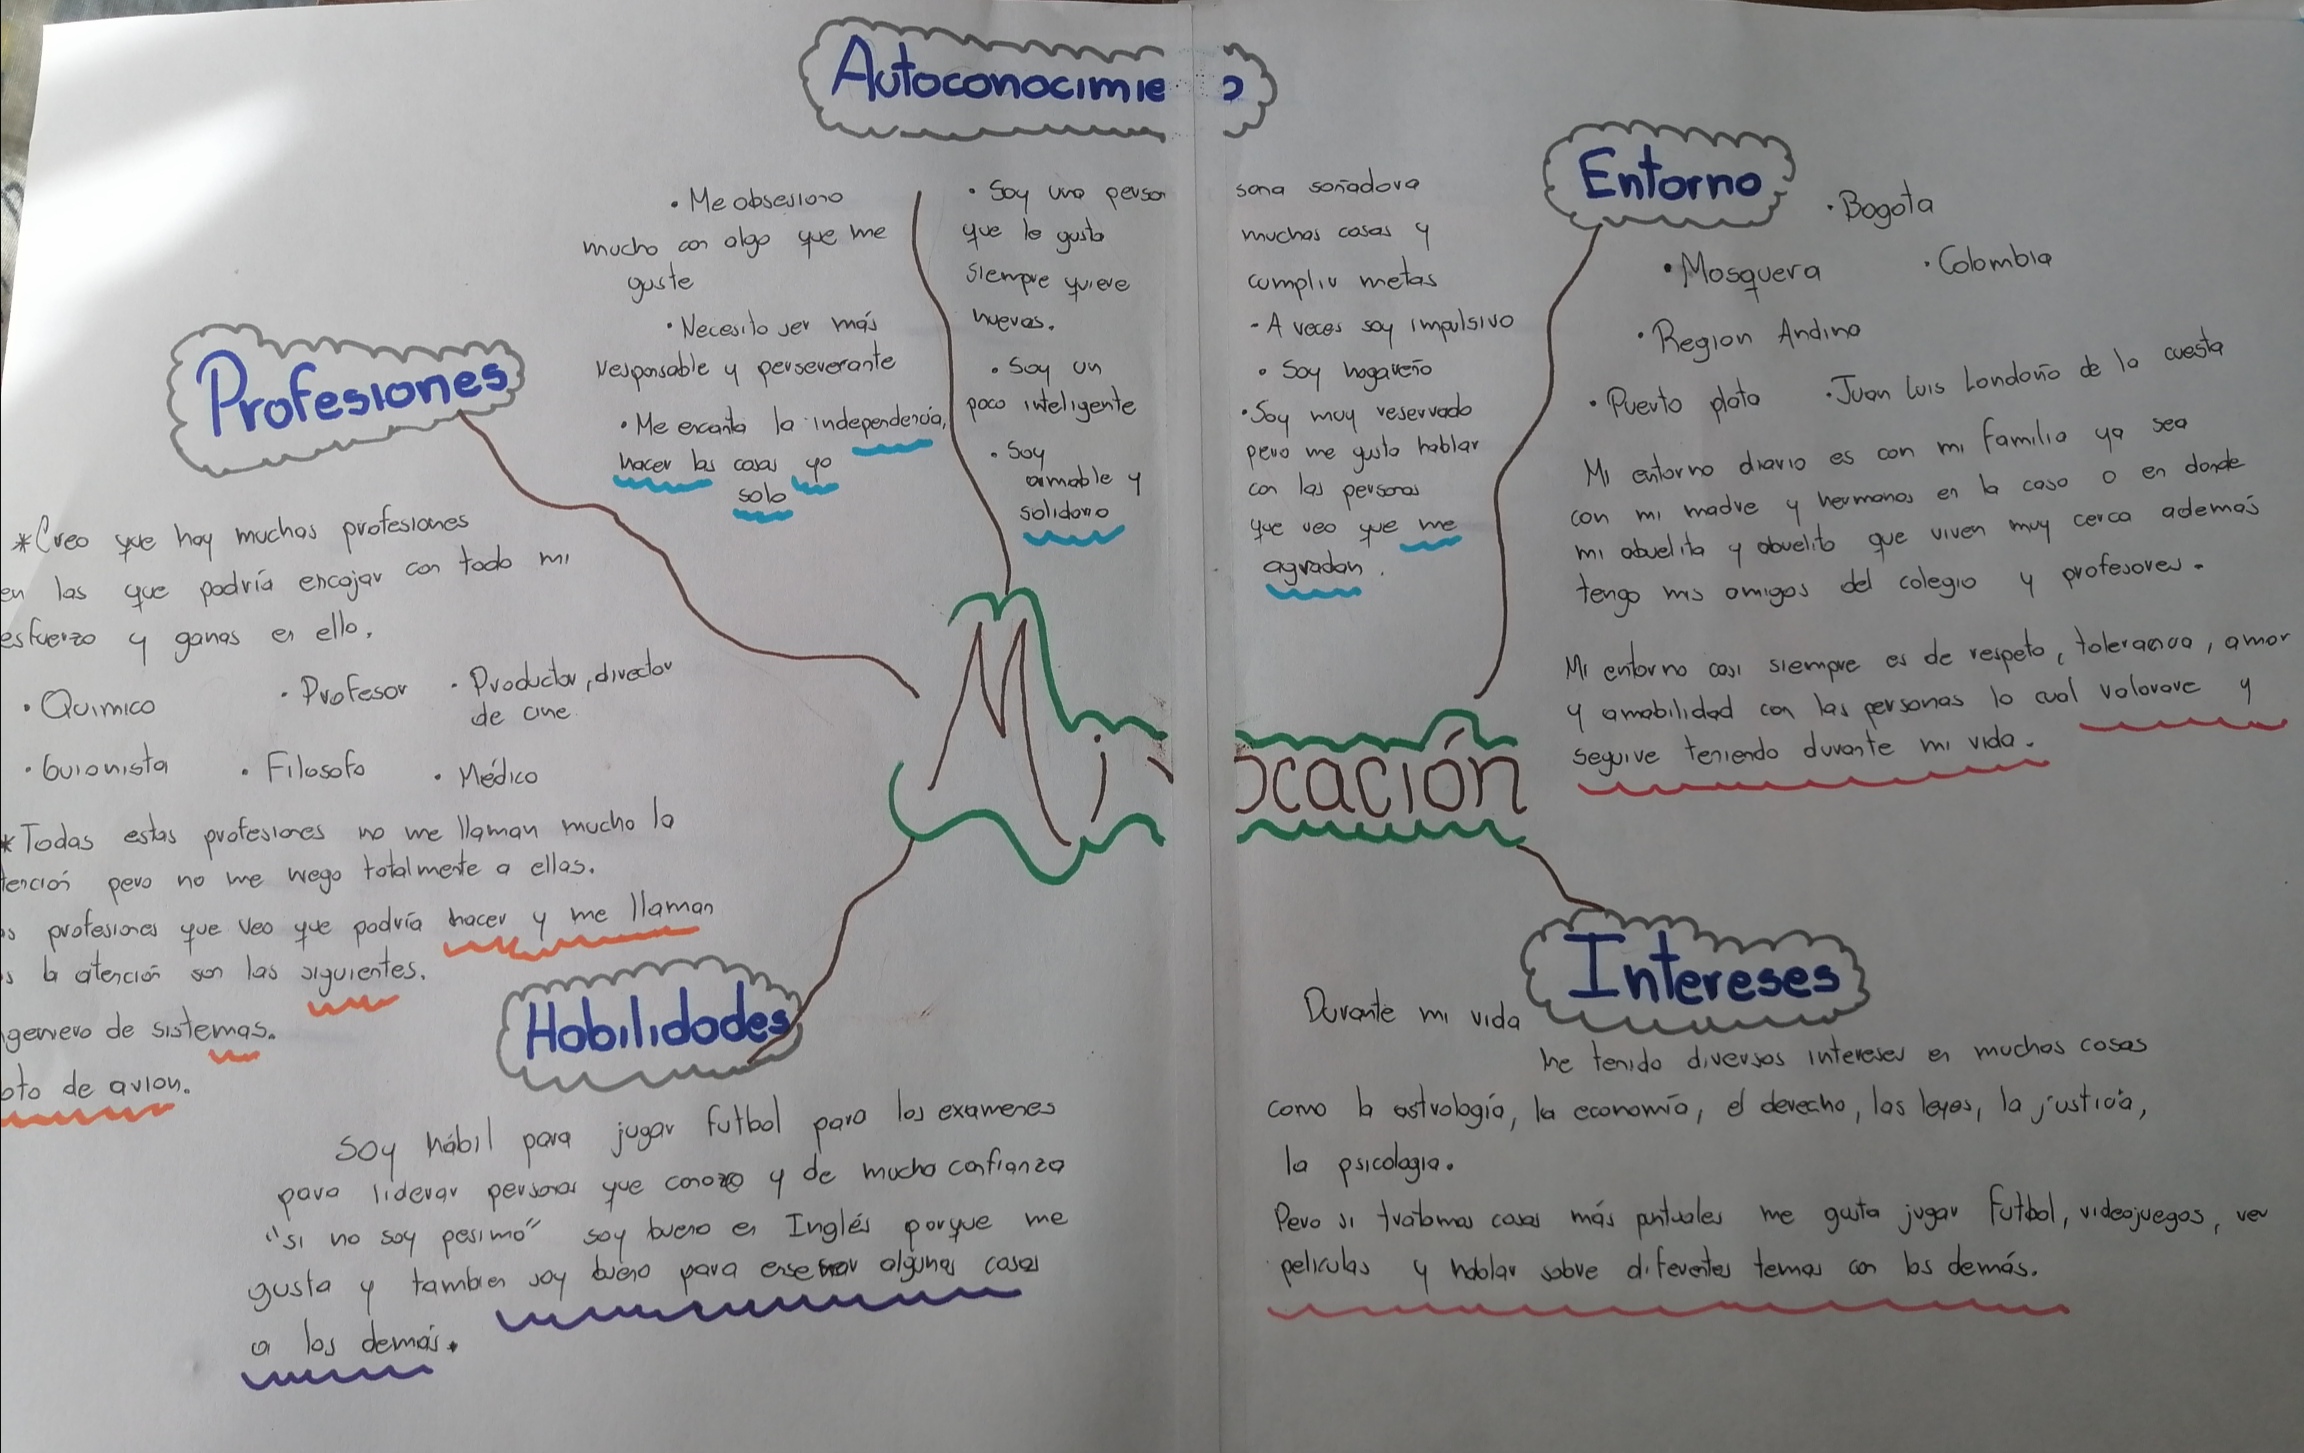 Autoconocimie o
• Me obsesiono
mucho con algo que me
guste
• Necesito ser más
responsable y perseverante
• Me encanta la independencia,
hacer las cosas yo
solo
• Soy una person sona soñadora
que le gusta muchas cosas y
siempre quiere cumplir metas
nuevas.
• Soy un
poco inteligente
• Soy
amable y
solidario
- A veces soy impulsivo
• Soy hogareño
• Soy muy reservado
pero me gusta hablar
con las personas
que veo que me
agradan.
Entorno
• Bogota
• Mosquera • Colombia
• Region Andina
• Puerto plata • Juan Luis Londoño de la cuesta
Mi entorno diario es con mi familia ya sea
con mi madre y hermanos en la casa o en donde
mi abuelita y abuelito que viven muy cerca además
tengo mis amigos del colegio y profesores.
Mi entorno casi siempre es de respeto, tolerancia, amor
y amabilidad con las personas lo cual valorare y
seguire teniendo durante mi vida.
Profesiones
*Creo que hay muchas profesiones
en las que podría encajar con todo mi
esfuerzo y ganas en ello.
• Quimico • Profesor • Productor, director
de cine
• Guionista • Filosofo • Médico
*Todas estas profesiones no me llaman mucho la
tención pero no me niego totalmente a ellas.
s profesiones que veo que podría hacer y me llaman
s la atención son las siguientes.
ngeniero de sistemas.
oto de avion.
Mi ocación
Habilidades
Soy hábil para jugar futbol para los examenes
para liderar personas que conozco y de mucha confianza
"si no soy pesimo" soy bueno en Inglés porque me
gusta y tambien soy bueno para enseñar algunas cosas
a los demás.
Intereses
Durante mi vida
he tenido diversos intereses en muchas cosas
como la astrología, la economía, el derecho, las leyes, la justicia,
la psicologia.
Pero si tratamos cosas más puntuales me gusta jugar futbol, videojuegos, ver
peliculas y hablar sobre diferentes temas con los demás.